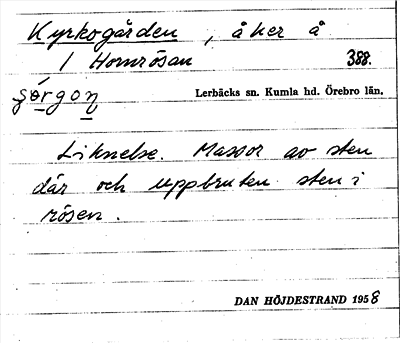 Kyrkogården, åker å
1 Hornrösan 388.
Lerbäcks sn. Kumla hd. Örebro län.
Liknelse. Massor av sten
där och uppbruten sten i
rösen.
DAN HÖJDESTRAND 1958